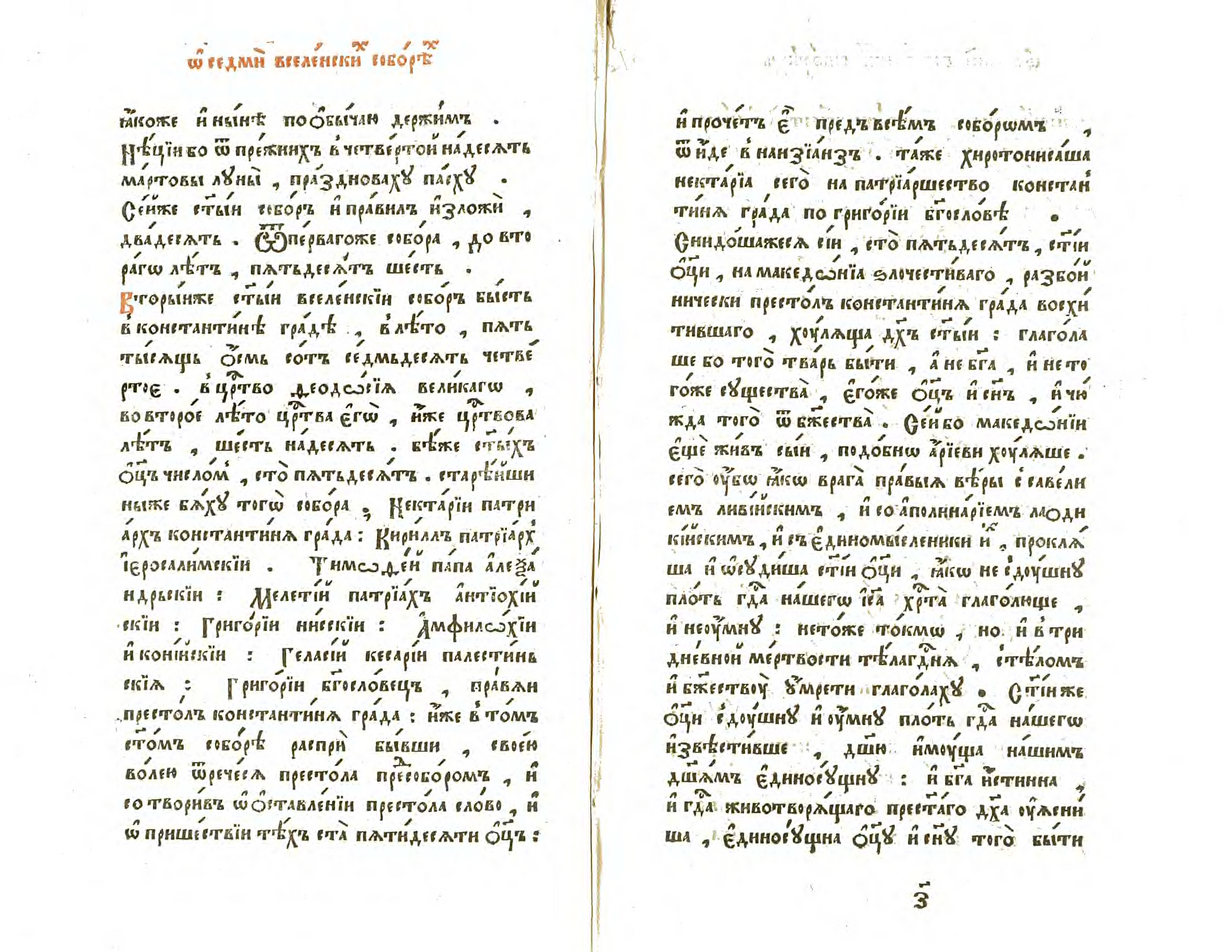 ѡ҆ седмѝ вселе́нскиⷯ собо́рѣⷯ
ꙗ҆́коже и҆ ны́нѣ по ѻ҆бы́чаю держи́мъ .
Нѣ́цїи бо ѿ пре́жнихъ в четве́ртой на́десять
ма́ртовы лꙋны̀ , пра́здновахꙋ па́схꙋ .
Се́йже ст҃ы́й собо́ръ и҆ пра́вилъ и҆зложѝ ,
два́десять . Ѿ пе́рвагоже собо́ра , до вто
ра́гѡ лѣ́тъ , пѧтьдесѧ́тъ ше́сть .
Вторы́йже ст҃ы́й вселе́нскїи собо́ръ бы́сть
в константи́нѣ гра́дѣ , в лѣ́то , пѧть
ты́сѧщь ѻ҆́смь со́тъ се́дмьдесѧтъ четве́
ртоє . в црⷭ҇тво ѳеодѡ́сїѧ вели́кагѡ ,
во второ́е лѣ́то црⷭ҇тва є҆гѡ̀ , и҆́же црⷭ҇твова
лѣ́тъ , ше́сть на́десять . бѣ́же ст҃ы́хъ
ѻ҆ц҃ъ число́мъ , сто̀ пѧтьдесѧ́тъ . старѣ́йши
ныже бѧ́хꙋ тогѡ̀ собо́ра ; Некта́рїи патри
а́рхъ константи́нѧ гра́да : Кири́ллъ патрїа́рхъ
і҆еросали́мскїи . Тимѡѳе́й па́па алеѯа
ндрьскїи : Меле́тїй патрїа́хъ а҆нтїохі́й
скїи : Григо́рїи ни́сскїи : А҆мфилѡ́хїи
и҆ коні́йскїи : Гела́сїй кесарі́и палести́нь
скїѧ : Григо́рїи бг҃осло́вецъ , пра́вѧи
престо́лъ константи́нѧ гра́да : и҆́же в то́мъ
ст҃о́мъ собо́рѣ ра́спри бы́вши , свое́ю
во́лею ѿрече́сѧ престо́ла преⷣ собо́ромъ , и҆
сотвори́въ ѡ҆ ѻ҆ставле́нїи престо́ла сло́во , и҆
ѡ҆ прише́ствїи тѣ́хъ ста̀ пѧти́десѧти ѻ҆ц҃ъ :
и҆ проче́тъ є҆̀ предъ всѣ́мъ собо́рѡмъ ,
ѿи́де в нанзїа́нзъ . та́же хиротониса́ша
некта́рїа сего̀ на патрїа́ршество констан
ти́нѧ гра́да по григо́рїи бг҃осло́вѣ .
Снидо́шажесѧ сїи , сто̀ пѧтьдесѧ́тъ , ст҃і́и
ѻ҆ц҃и , на македѡ́нїа ѕлочести́ваго , разбо́й
нически престо́лъ константи́нѧ гра́да восхи́
тившаго , хꙋ́лѧща дх҃ъ ст҃ы́й : глаго́ла
ше бо того̀ тва́рь бы́ти , а҆ не бг҃а , и҆ не то
го́же сꙋщества̀ , є҆го́же ѻ҆ц҃ъ и҆ сн҃ъ , и҆ чю
жда того̀ ѿ бжⷭ҇ества̀ . Се́й бо македѡ́нїи
є҆щѐ жи́въ сы́й , подо́бнѡ а҆́рїеви хꙋ́лѧше .
сего̀ ᲂу҆́бо ꙗ҆́кѡ врага̀ пра́выѧ вѣ́ры с саве́ли
емъ ливі́йскимъ , и҆ со а҆полина́рїемъ лаоди
кі́йскимъ , и҆ съ є҆диномы́сленики и҆́ⷯ , проклѧ́
ша и҆ ѡ҆сꙋди́ша ст҃і́и ѻ҆ц҃и , ꙗ҆́кѡ не ѻ҆дꙋ́шнꙋ
пло́ть гдⷭ҇а на́шегѡ і҆с҃а хрⷭ҇та̀ глаго́люще ,
и҆ не ᲂу҆́мнꙋ : не то́же то́кмѡ , но и҆ в три
дне́вной ме́ртвости тѣ́ла гдⷭ҇нѧ , с тѣ́ломъ
и҆ бжⷭ҇ествꙋ̀ ᲂу҆мре́ти глаго́лахꙋ . Ст҃і́и же
ѻ҆ц҃и ѻ҆дꙋ́шнꙋ и҆ ᲂу҆́мнꙋ пло́ть гдⷭ҇а на́шегѡ
и҆звѣ́стивше , дш҃ю и҆мꙋ́ща на́шимъ
дш҃а́мъ є҆диносꙋ́щнꙋ : и҆ бг҃а и҆́стинна ,
и҆ гдⷭ҇а животворѧ́щаго прест҃а́го дх҃а ᲂу҆ѧсни́
ша , є҆диносꙋ́щна ѻ҆ц҃ꙋ и҆ сн҃ꙋ того̀ бы́ти
з҃